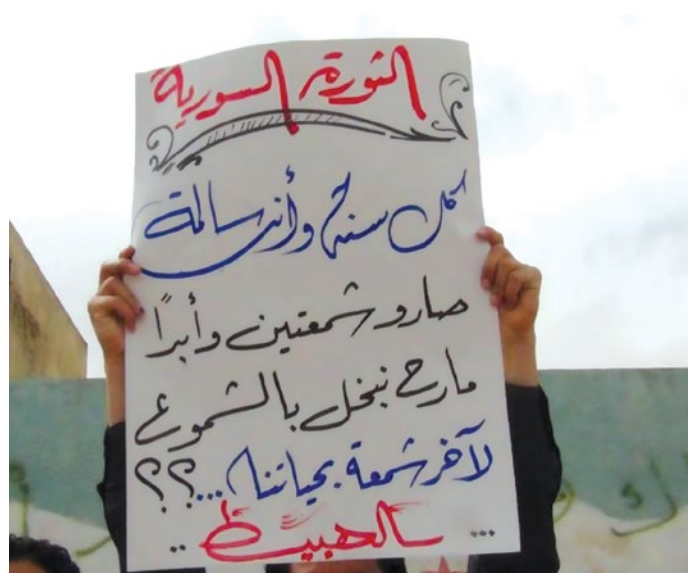 الثورة السورية
كل سنة وأنت سالمة
صارو شمعتين وأبدًا
مارح نبخل بالشموع
لآخر شمعة بحياتنا...؟؟
... الهبيط ..